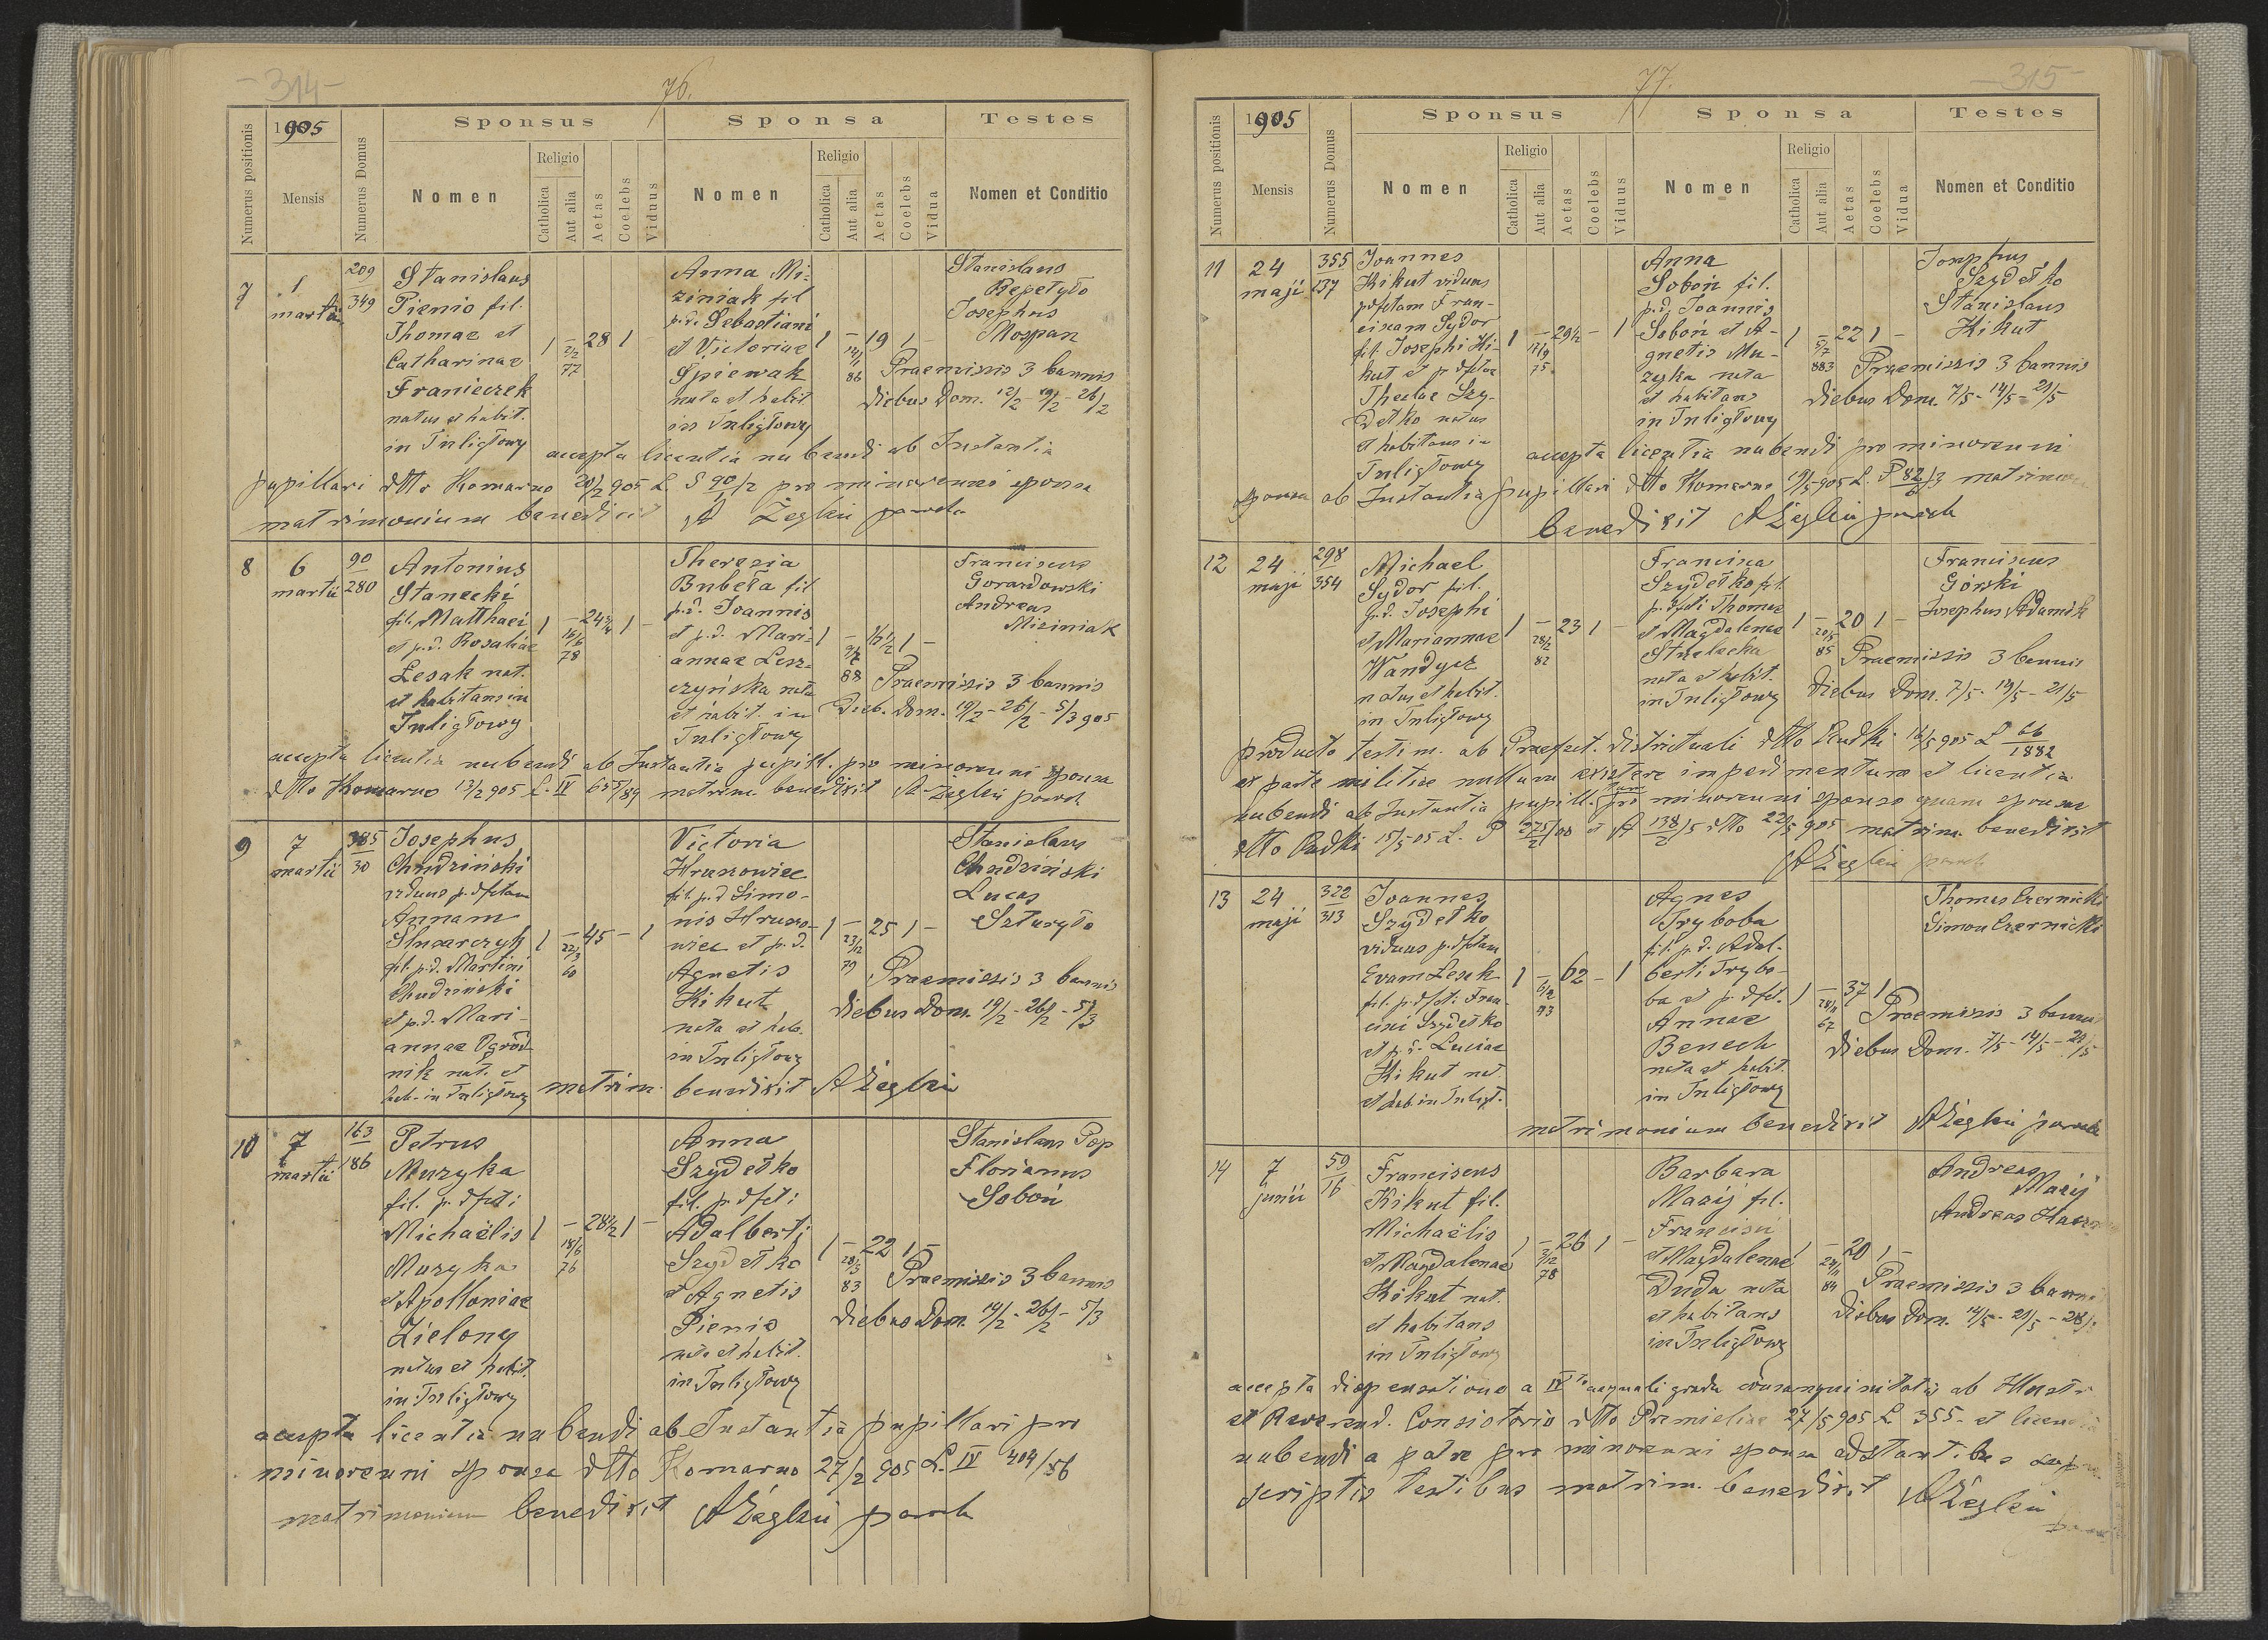 -314-
76.
Numerus positionis
1905
Mensis
Numerus Domus
Sponsus
Nomen
Religio
Catholica
Aut alia
Aetas
Coelebs
Viduus
Sponsa
Nomen
Religio
Catholica
Aut alia
Aetas
Coelebs
Vidua
Testes
Nomen et Conditio
7
1
martii
209
349
Stanislaus
Pienio fil.
Thomae et
Catharinae
Franieczek
natus et habit.
in Tuligłowy
1 - 28 1
2/2
77
Anna Mi-
ziniak fil
p.d. Sebastiani
et Victoriae
Spiewak
nata et habit
in Tuligłowy
1 - 19 1 -
14/1
86
Stanislaus
Repetyło
Josephus
Mospan
Praemissis 3 bannis
diebus Dom. 12/2 - 19/2 - 26/2
accepta licentia nubendi ab Instantia
pupillari dtto Komarno 20/2 905 L. S 90/2 pro minorenni sponsa
matrimonium benedixit A Żeglin paroch
8
6
martii
90
280
Antonius
Stanecki
fil. Matthaei
et p.d. Rosaliae
Lesak nat.
et habitans in
Tuligłowy
1 - 24 3/4 1 -
16/6
78
Theresia
Bubeła fil
p.d. Joannis
et p.d. Mari-
annae Lesz-
czyńska nata
et habit. in
Tuligłowy
1 - 16 1/2 1 -
88
Franciscus
Gorardowski
Andreas
Miziniak
Praemissis 3 bannis
Dieb. Dom. 19/2 - 26/2 - 5/3 905
accepta licentia nubendi ab Instantia pupill. pro minorenni sponsa
dtto Komarno 13/2 905 L. IV 655/89 matrim. benedixit A Żeglin paroch
9
7
martii
385
30
Josephus
Chudziński
viduus p. dfctam
Annam
Ślusarczyk
fil. p.d. Martini
Chudziński
et p.d. Mari-
annae Ogrod-
nik nat. et
hab. in Tuligłowy
1 - 45 - 1
22/3
60
Victoria
Hrunowiec
fil. p.d Simo-
nis Hruno-
wiec et p.d.
Agnetis
Kikut
nata et hab.
in Tuligłowy
1 - 25 1 -
23/12
79
Stanislaus
Chudziński
Lucas
Szturyło
Praemissis 3 bannis
diebus Dom. 19/2 - 26/2 - 5/3
matrim. benedixit A Żeglin
10
7
martii
163
186
Petrus
Muzyka
fil. p. dfcti
Michaëlis
Muzyka
et Apolloniae
Zielony
natus et habit.
in Tuligłowy
1 - 28 1/2 1 -
18/6
76
Anna
Szydełko
fil. p. dfcti
Adalberti
Szydełko
et Agnetis
Pienio
nata et habit.
in Tuligłowy
1 - 22 1 -
28/3
83
Stanislaus Pop
Florianus
Soboń
Praemissis 3 bannis
diebus Dom. 19/2 - 26/2 - 5/3
accepta licentia nubendi ab Instantia pupillari pro
minorenni sponsa dtto Komarno 27/2 905 L. IV 404/56
matrimonium benedixit A Żeglin paroch
-315-
77.
Numerus positionis
1905
Mensis
Numerus Domus
Sponsus
Nomen
Religio
Catholica
Aut alia
Aetas
Coelebs
Viduus
Sponsa
Nomen
Religio
Catholica
Aut alia
Aetas
Coelebs
Vidua
Testes
Nomen et Conditio
11
24
maji
355
137
Joannes
Kikut viduus
p dfctam Fran-
ciscam Sydor
fil. Josephi Ki-
kut et p dfctae
Theclae Szy-
dełko natus
et habitans in
Tuligłowy
1 - 29 1/2 - 1
17/9
75
Anna
Soboń fil.
p.d. Joannis
Soboń et A-
gnetis Mu-
zyka nata
et habitans
in Tuligłowy
1 - 22 1 -
5/7
883
Josephus
Szydełko
Stanislaus
Kikut
Praemissis 3 bannis
diebus Dom. 7/5 - 14/5 - 21/5
accepta licentia nubendi pro minorenni
sponsa ab Instantia pupillari dtto Komarno 19/5 905 L. P 82/6/3 matrimon
benedixit A Żeglin paroch
12
24
maji
298
354
Michael
Sydor fil.
p.d. Josephi
et Mariannae
Wandycz
natus et habit.
in Tuligłowy
1 - 23 1 -
28/2
82
Francisca
Szydełko fil.
p. dfcti Thomae
et Magdalenae
Strzelecka
nata et habit.
in Tuligłowy
1 - 20 1 -
20/5
85
Franciscus
Górski
Josephus Adamik
Praemissis 3 bannis
diebus Dom. 7/5 - 14/5 - 21/5
producto testim. ab Praefect. districtuali dtto Rudki 16/5 905 L 66/1882
ex parte militiae nullum existere impedimentum et licentia
nubendi ab Instantia pupill. tam pro minorenni sponso quam sponsae
dtto Rudki 15/5 05 L. P 275/2/00 et A 138/2/5 dtto 22/5 905 matrim. benedixit
A Żeglin paroch
13
24
maji
322
313
Joannes
Szydełko
viduus p. dfctam
Evam Lesak
fil. p. dfcti Fran-
cisci Szydełko
et p.d. Luciae
Kikut nat.
et hab in Tuligł.
1 - 62 - 1
43
Agnes
Tryboba
fil. p.d. Adal-
berti Trybo-
ba et p. dfct.
Annae
Benech
nata et habit.
in Tuligłowy
1 - 37 1
67
Thomas Czernicki
Simon Czernicki
Praemissis 3 bannis
diebus Dom. 7/5 - 14/5 - 21/5
matrimonium benedixit A Żeglin paroch
14
7
junii
59
16
Franciscus
Kikut fil.
Michaëlis
et Magdalenae
Kikut nat.
et habitans
in Tuligłowy
1 - 26 1 -
3/12
78
Barbara
Mazij fil.
Francisci
et Magdalenae
Duda nata
et habitans
in Tuligłowy
1 - 20 1 -
84
Andreas
Mazij
Andreas
Praemissis 3 bannis
diebus Dom. 14/5 - 21/5 - 28/5
accepta dispensatione a IVto aequali gradu consanguinitatis ab Illustr
et Reverend. Consistorio dtto Premisliae 27/5 905 L 355 - et licentia
nubendi a patre pro minorenni sponsa adstantibus supra
scriptis testibus matrim. benedixit A Żeglin